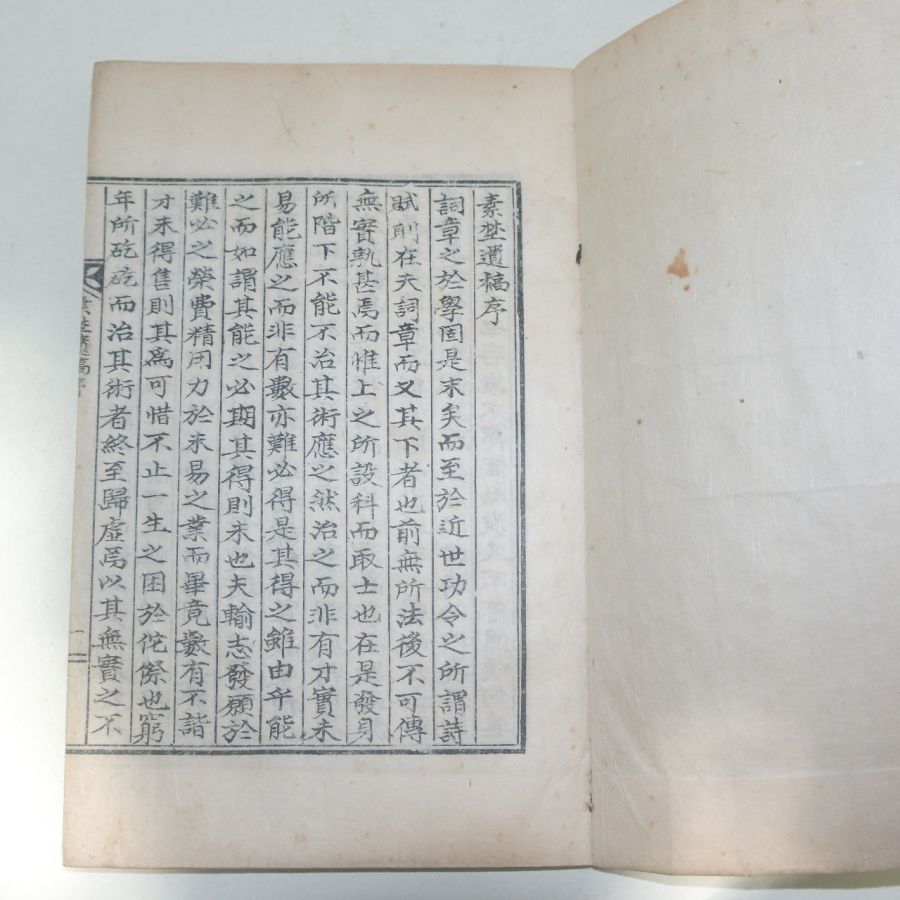 素埜遺稿序
詞章之於學固是末矣而至於近世功令之所謂詩
賦則在天詞章而又其下者也前無所法後不可傳
無實孰甚焉而惟上之所設科而取士也在是發身
所階下不能不治其術應之然治之而非有才實未
易能應之而非有數亦難必得是其得之雖由乎能
之而如謂其能之必期其得則未也夫輸志發願於
難必之榮費精用力於未易之業而畢竟數有不諧
才未得售則其爲可惜不止一生之困於侘傺也窮
年所矻矻而治其術者終至歸虛焉以其無實之不
素埜遺稿序
一